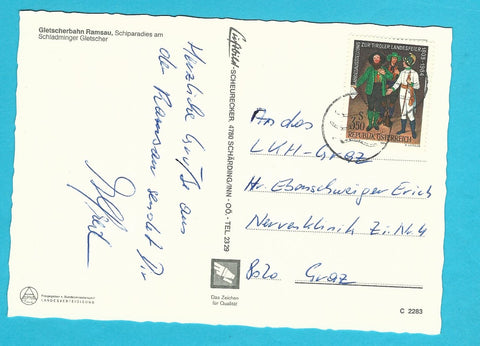 Gletscherbahn Ramsau, Schiparadies am
Schladminger Gletscher
Herzliche Grüße aus
der Ramsau sendet Dir
Luftbild-SCHEURECKER, 4780 SCHÄRDING/INN - OÖ. - TEL. 2329
LANDESAUSSTELLUNG ZUR TIROLER LANDESFEIER 1809-1984
S 3.50
REPUBLIK ÖSTERREICH
An das
LKH-Graz
Hr. Ebenschweiger Erich
Nervenklinik Zi. Nr. 4
8020 Graz
Das Zeichen
für Qualität
LANDESVERTEIDIGUNG
C 2283